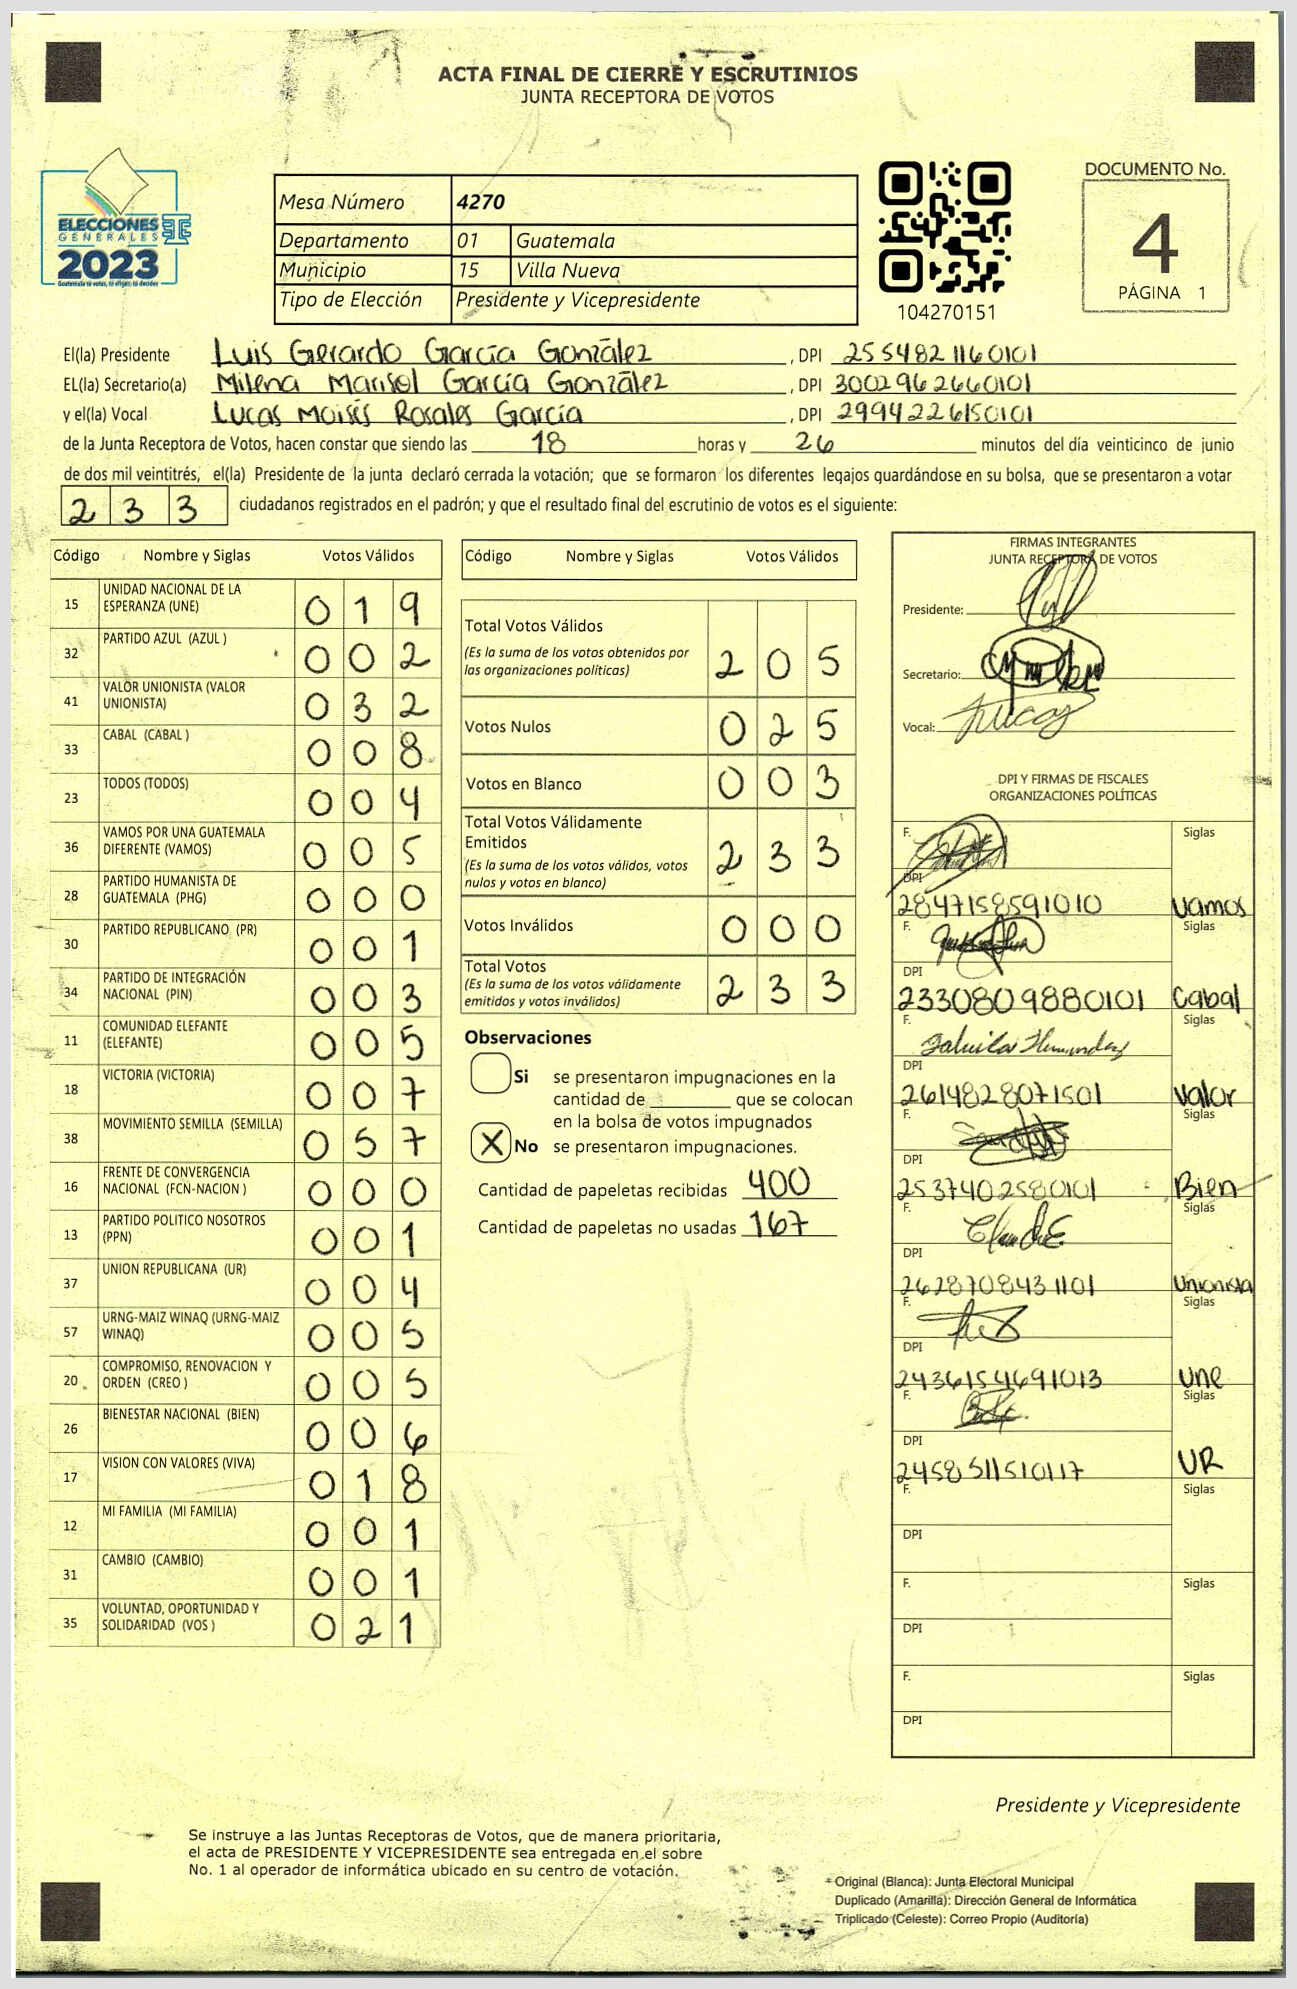 ACTA FINAL DE CIERRE Y ESCRUTINIOS
JUNTA RECEPTORA DE VOTOS
ELECCIONES
GENERALES
2023
Guatemala tú votas, tú eliges, tú decides
Mesa Número 4270
Departamento 01 Guatemala
Municipio 15 Villa Nueva
Tipo de Elección Presidente y Vicepresidente
104270151
DOCUMENTO No.
4
PÁGINA 1
El(la) Presidente Luis Gerardo García González, DPI 2554821160101
EL(la) Secretario(a) Milena Marisol García González, DPI 3002962660101
y el(la) Vocal Lucas Moisés Rosales García, DPI 2994226150101
de la Junta Receptora de Votos, hacen constar que siendo las 18 horas y 26 minutos del día veinticinco de junio
de dos mil veintitrés, el(la) Presidente de la junta declaró cerrada la votación; que se formaron los diferentes legajos guardándose en su bolsa, que se presentaron a votar
233 ciudadanos registrados en el padrón; y que el resultado final del escrutinio de votos es el siguiente:
Código Nombre y Siglas Votos Válidos
15 UNIDAD NACIONAL DE LA ESPERANZA (UNE) 019
32 PARTIDO AZUL (AZUL ) 002
41 VALOR UNIONISTA (VALOR UNIONISTA) 032
33 CABAL (CABAL ) 008
23 TODOS (TODOS) 004
36 VAMOS POR UNA GUATEMALA DIFERENTE (VAMOS) 005
28 PARTIDO HUMANISTA DE GUATEMALA (PHG) 000
30 PARTIDO REPUBLICANO (PR) 001
34 PARTIDO DE INTEGRACIÓN NACIONAL (PIN) 003
11 COMUNIDAD ELEFANTE (ELEFANTE) 005
18 VICTORIA (VICTORIA) 007
38 MOVIMIENTO SEMILLA (SEMILLA) 057
16 FRENTE DE CONVERGENCIA NACIONAL (FCN-NACION ) 000
13 PARTIDO POLITICO NOSOTROS (PPN) 001
37 UNION REPUBLICANA (UR) 004
57 URNG-MAIZ WINAQ (URNG-MAIZ WINAQ) 005
20 COMPROMISO, RENOVACION Y ORDEN (CREO ) 005
26 BIENESTAR NACIONAL (BIEN) 006
17 VISION CON VALORES (VIVA) 018
12 MI FAMILIA (MI FAMILIA) 001
31 CAMBIO (CAMBIO) 001
35 VOLUNTAD, OPORTUNIDAD Y SOLIDARIDAD (VOS ) 021
Código Nombre y Siglas Votos Válidos
Total Votos Válidos
(Es la suma de los votos obtenidos por
las organizaciones políticas) 205
Votos Nulos 025
Votos en Blanco 003
Total Votos Válidamente
Emitidos
(Es la suma de los votos válidos, votos
nulos y votos en blanco) 233
Votos Inválidos 000
Total Votos
(Es la suma de los votos válidamente
emitidos y votos inválidos) 233
Observaciones
Si se presentaron impugnaciones en la
cantidad de ________ que se colocan
en la bolsa de votos impugnados
X No se presentaron impugnaciones.
Cantidad de papeletas recibidas 400
Cantidad de papeletas no usadas 167
FIRMAS INTEGRANTES
JUNTA RECEPTORA DE VOTOS
Presidente:
Secretario:
Vocal:
DPI Y FIRMAS DE FISCALES
ORGANIZACIONES POLÍTICAS
F. Siglas
DPI
2847158591010 Vamos
F. Siglas
DPI
2330809880101 Cabal
F. Siglas
DPI
2614828071501 Valor
F. Siglas
DPI
2537402580101 Bien
F. Siglas
DPI
2628708431101 Unionista
F. Siglas
DPI
2436154691013 Une
F. Siglas
DPI
2458511510117 UR
F. Siglas
DPI
F. Siglas
DPI
F. Siglas
DPI
Presidente y Vicepresidente
Se instruye a las Juntas Receptoras de Votos, que de manera prioritaria,
el acta de PRESIDENTE Y VICEPRESIDENTE sea entregada en el sobre
No. 1 al operador de informática ubicado en su centro de votación.
* Original (Blanca): Junta Electoral Municipal
Duplicado (Amarilla): Dirección General de Informática
Triplicado (Celeste): Correo Propio (Auditoría)